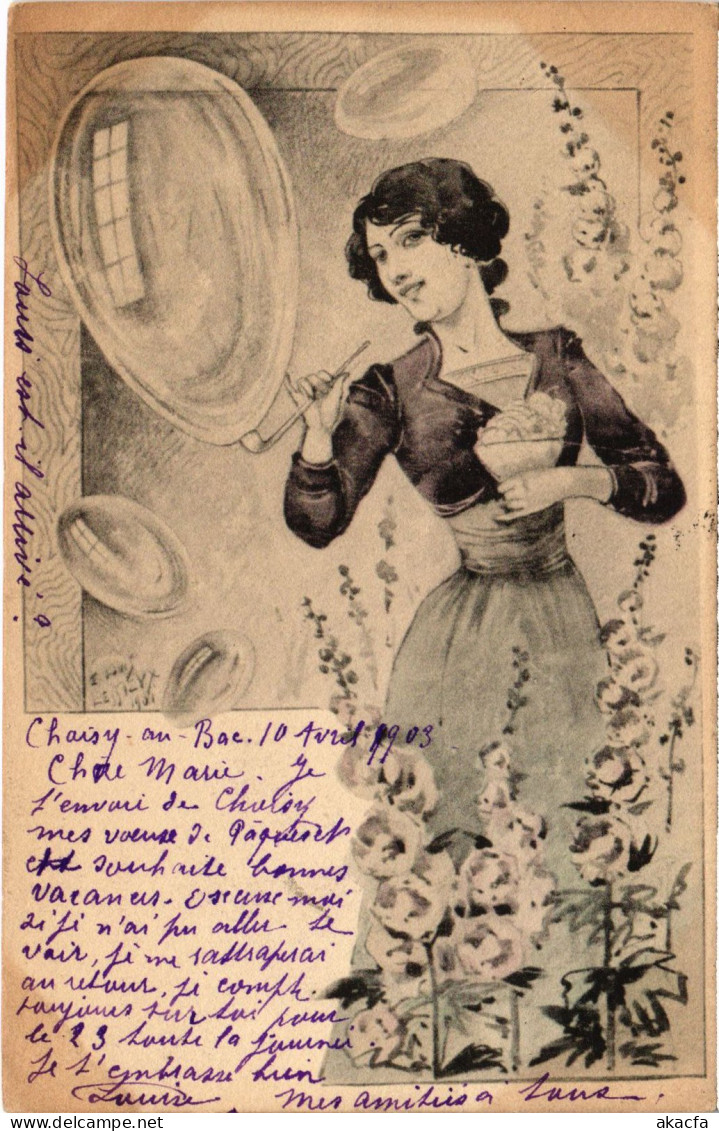 Choisy-au-Bac. 10 Avril 1903
Chre Marie. Je
t'envoie de Choisy
mes voeux de Pâques et
souhaite bonnes
vacances. excuse moi
si je n'ai pu aller te
voir, je me rattraperai
au retour, je compte
toujours sur toi pour
le 23 toute la journée.
Je t'embrasse bien
Louise. Mes amitiés à tous.
Louis est-il
© akacfa